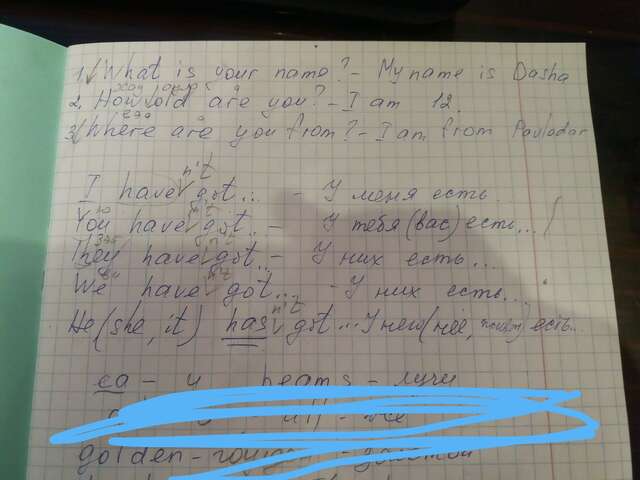 1. What is your name? - My name is Dasha
2. How old are you? - I am 12.
3. Where are you from? - I am from Pavlodar
n't
I have got... - У меня есть
n't
You have got... - У тебя (вас) есть...
n't
They have got... - У них есть...
n't
We have got... - У них есть...
n't
He (she, it) has got... У него (неё, есть...
ea - и beams - лучи
golden -